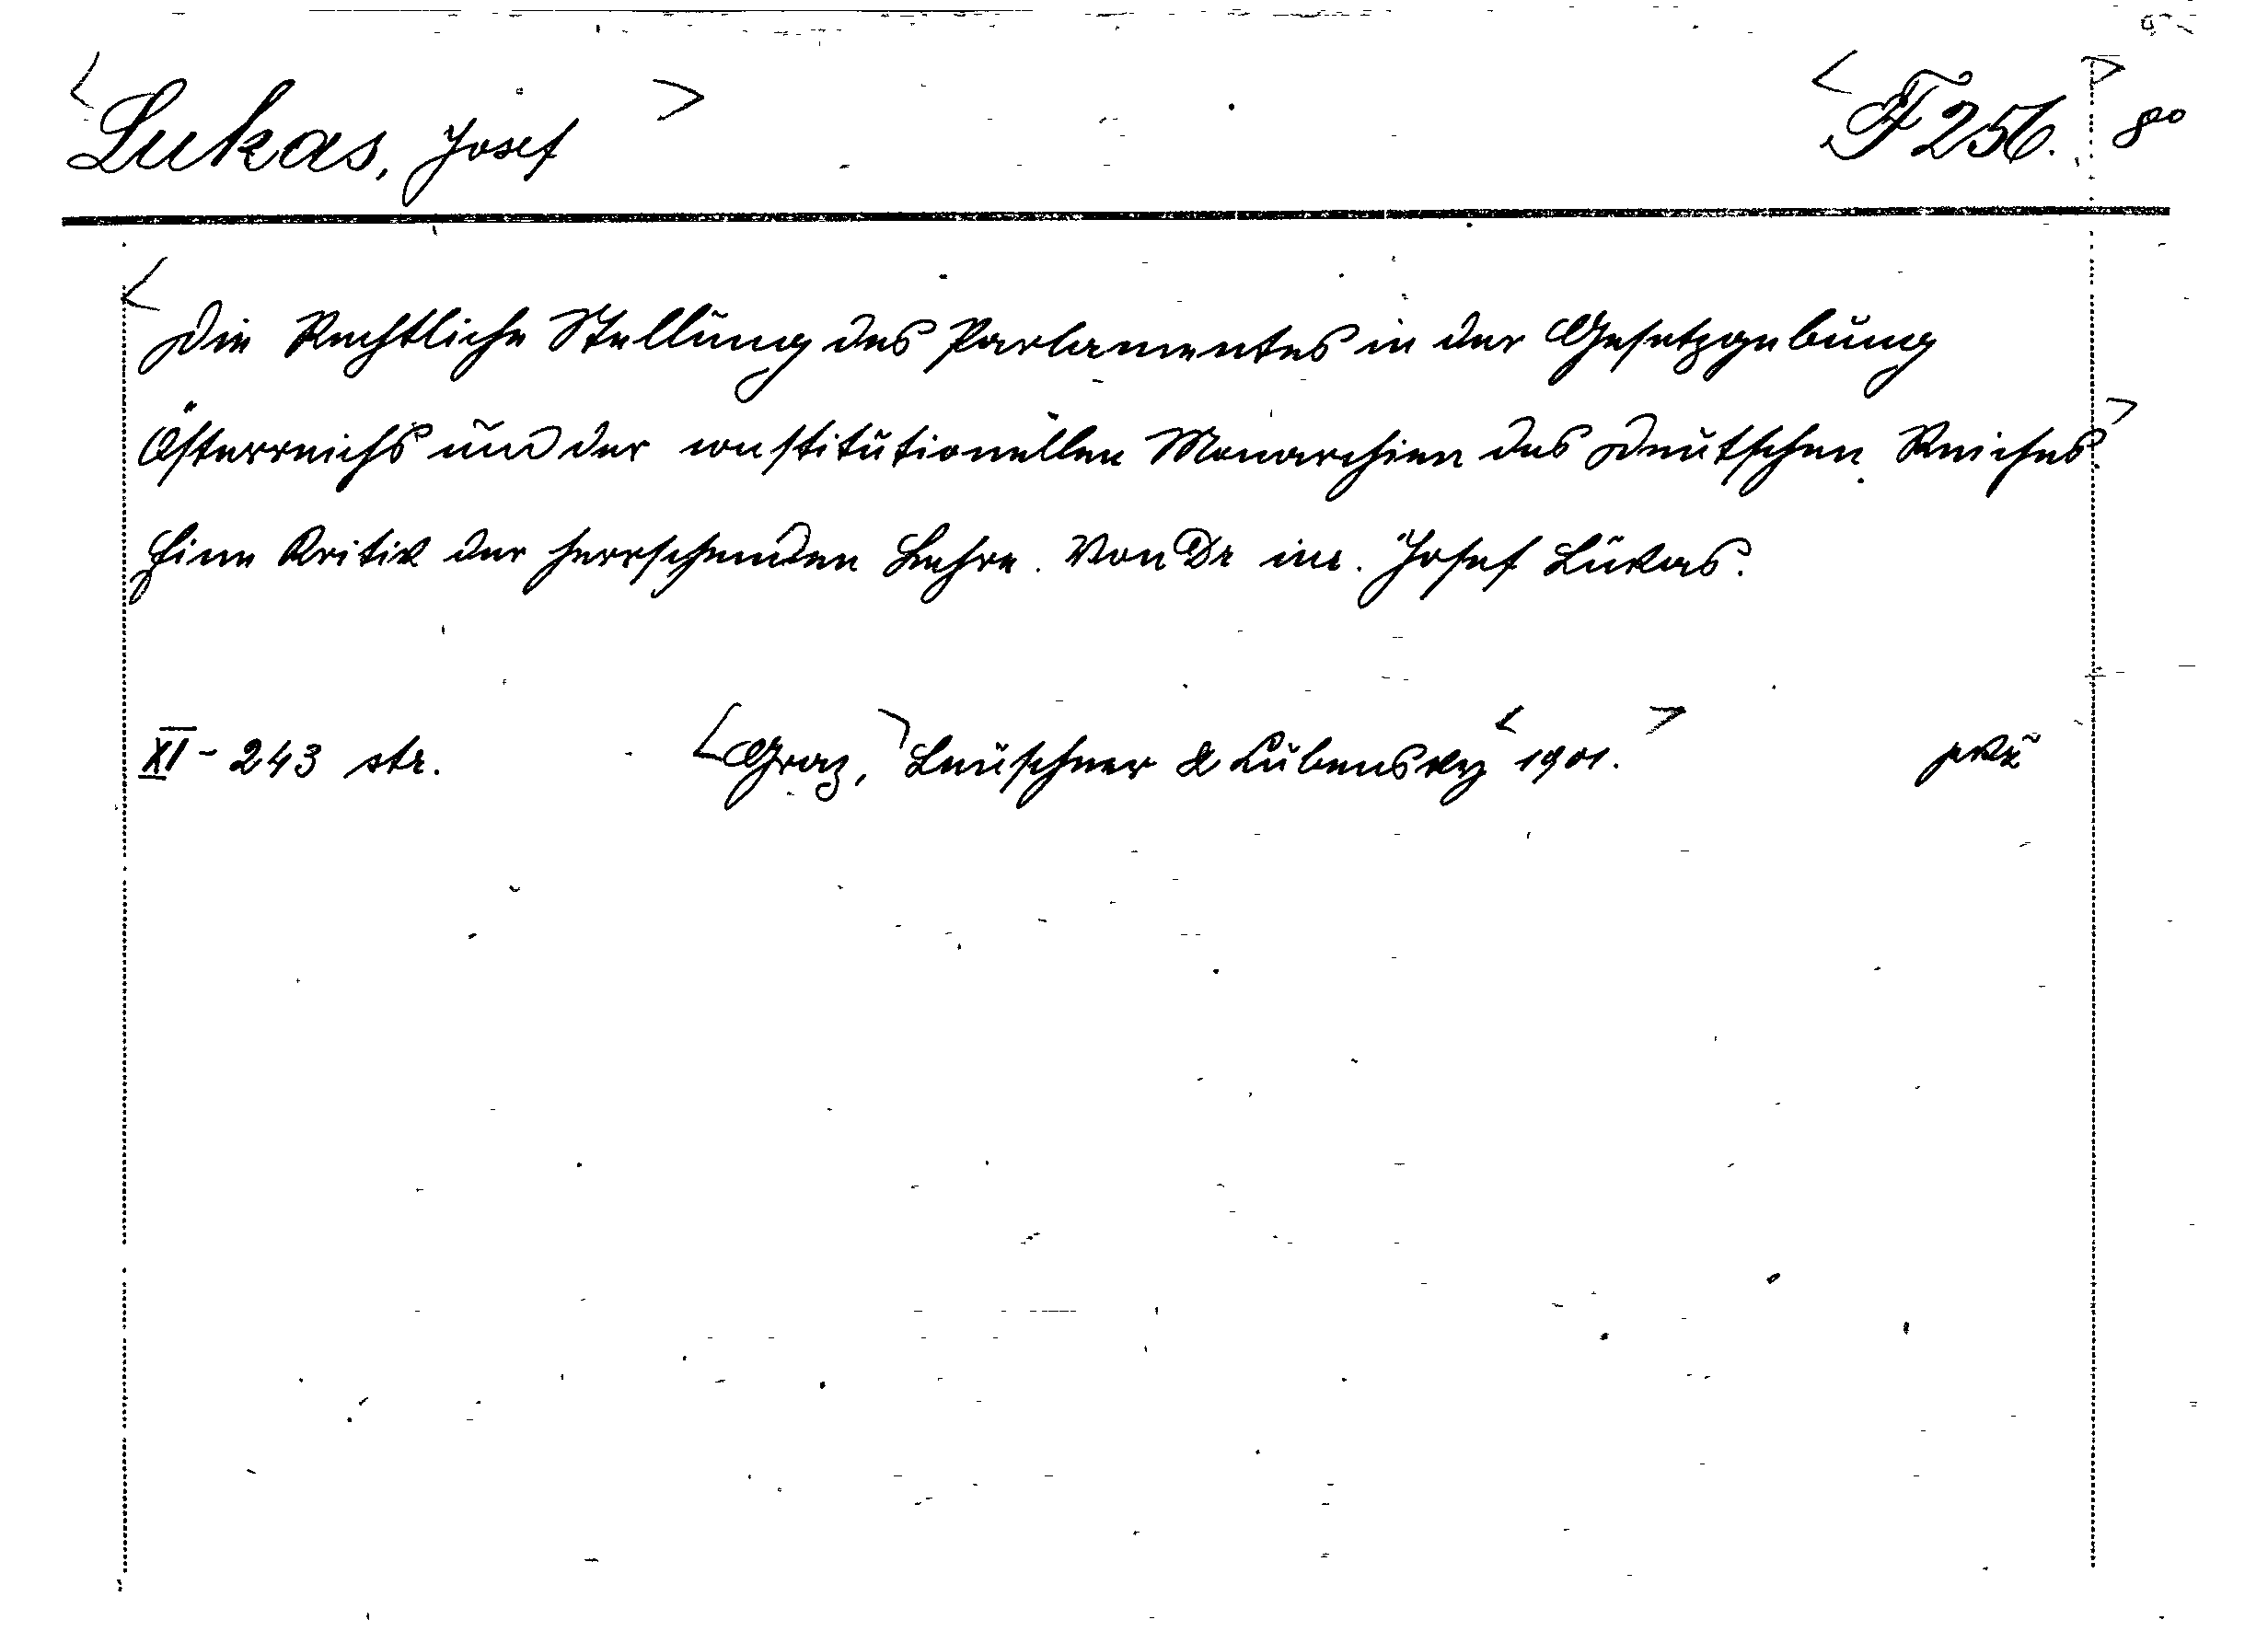 <Lukas, Josef> <F 256.> 8°
<Die Rechtliche Stellung des Parlamentes in der Gesetzgebung
Österreichs und der constitutionellen Monarchien des Deutschen Reiches.>
Eine Kritik der herrschenden Lehre. Von Dr iur. Josef Lukas.
XI - 243 str. <Graz,> Leuschner & Lubensky <1901.>